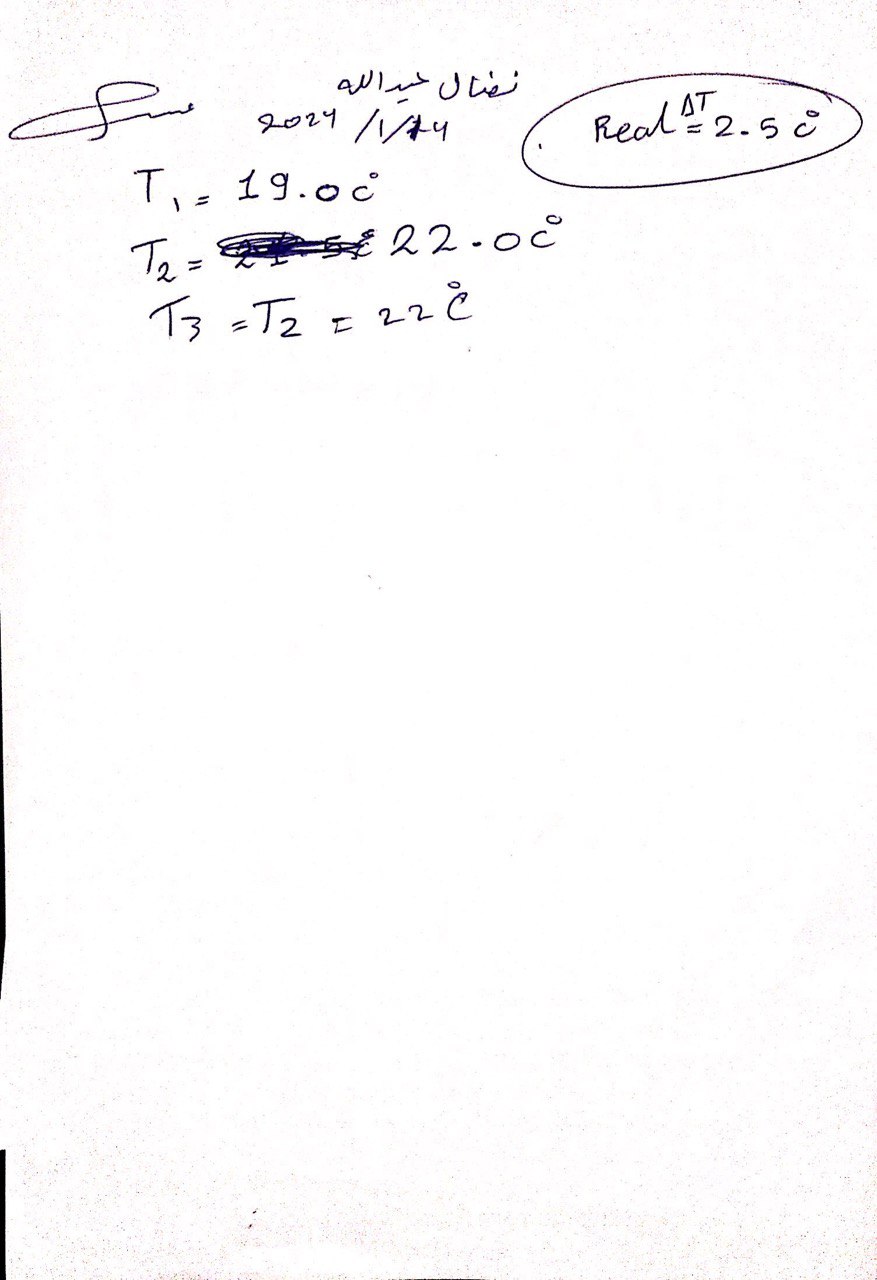 نضال عبدالله
2024/1/14
Real ΔT = 2.5 C°
T1 = 19.0 C°
T2 = 22.0 C°
T3 = T2 = 22 C°